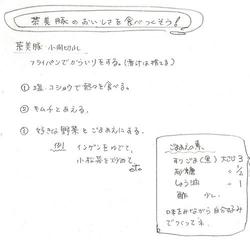 茶美豚のおいしさを食べつくそう!
茶美豚 小間切れ
フライパンでからいりをする。(油汁は捨てる)
① 塩・コショウで軽々を食べる。
② キムチとあえる。
③ 好きな野菜とごまあえにする。
例 インゲンをゆでて、
小松菜をゆでて
etc
ごまあえの素
すりごま(黒) 大さじ3
砂糖 〃 1/2
しょう油 〃 1
酢 少し
味をみながら自分好み
でつくってネ